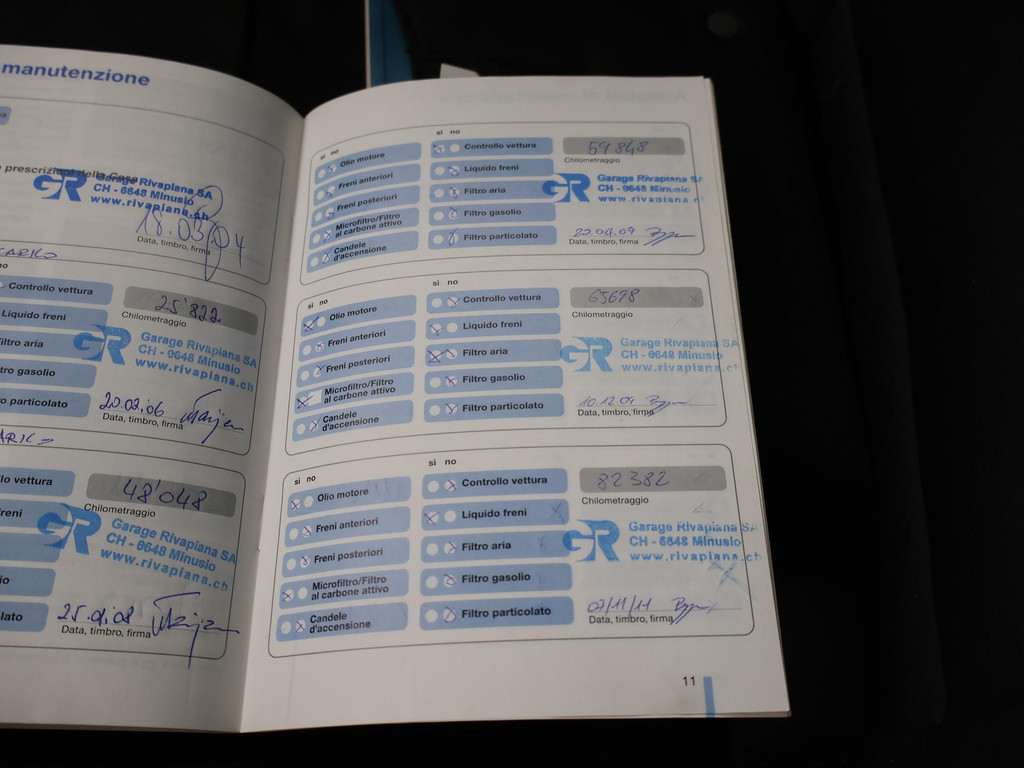 manutenzione
e prescrizioni della Casa
GR Garage Rivapiana SA
CH - 6648 Minusio
www.rivapiana.ch
18.03/04
Data, timbro, firma
no
Controllo vettura
25'822
Chilometraggio
Liquido freni
GR Garage Rivapiana SA
CH - 6648 Minusio
www.rivapiana.ch
filtro aria
tro gasolio
ro particolato
20.02.06
Data, timbro, firma
lo vettura
48'048
Chilometraggio
freni
GR Garage Rivapiana SA
CH - 6648 Minusio
www.rivapiana.ch
io
lato
25.01.08
Data, timbro, firma
si no
Olio motore
Freni anteriori
Freni posteriori
Microfiltro/Filtro
al carbone attivo
Candele
d'accensione
si no
Controllo vettura
Liquido freni
Filtro aria
Filtro gasolio
Filtro particolato
59 848
Chilometraggio
GR Garage Rivapiana SA
CH - 6648 Minusio
www.rivapiana.ch
20.04.09
Data, timbro, firma
si no
Olio motore
Freni anteriori
Freni posteriori
Microfiltro/Filtro
al carbone attivo
Candele
d'accensione
si no
Controllo vettura
Liquido freni
Filtro aria
Filtro gasolio
Filtro particolato
65698
Chilometraggio
GR Garage Rivapiana SA
CH - 6648 Minusio
www.rivapiana.ch
10.12.09
Data, timbro, firma
si no
Olio motore
Freni anteriori
Freni posteriori
Microfiltro/Filtro
al carbone attivo
Candele
d'accensione
si no
Controllo vettura
Liquido freni
Filtro aria
Filtro gasolio
Filtro particolato
82382
Chilometraggio
GR Garage Rivapiana SA
CH - 6648 Minusio
www.rivapiana.ch
07/11/11
Data, timbro, firma
11